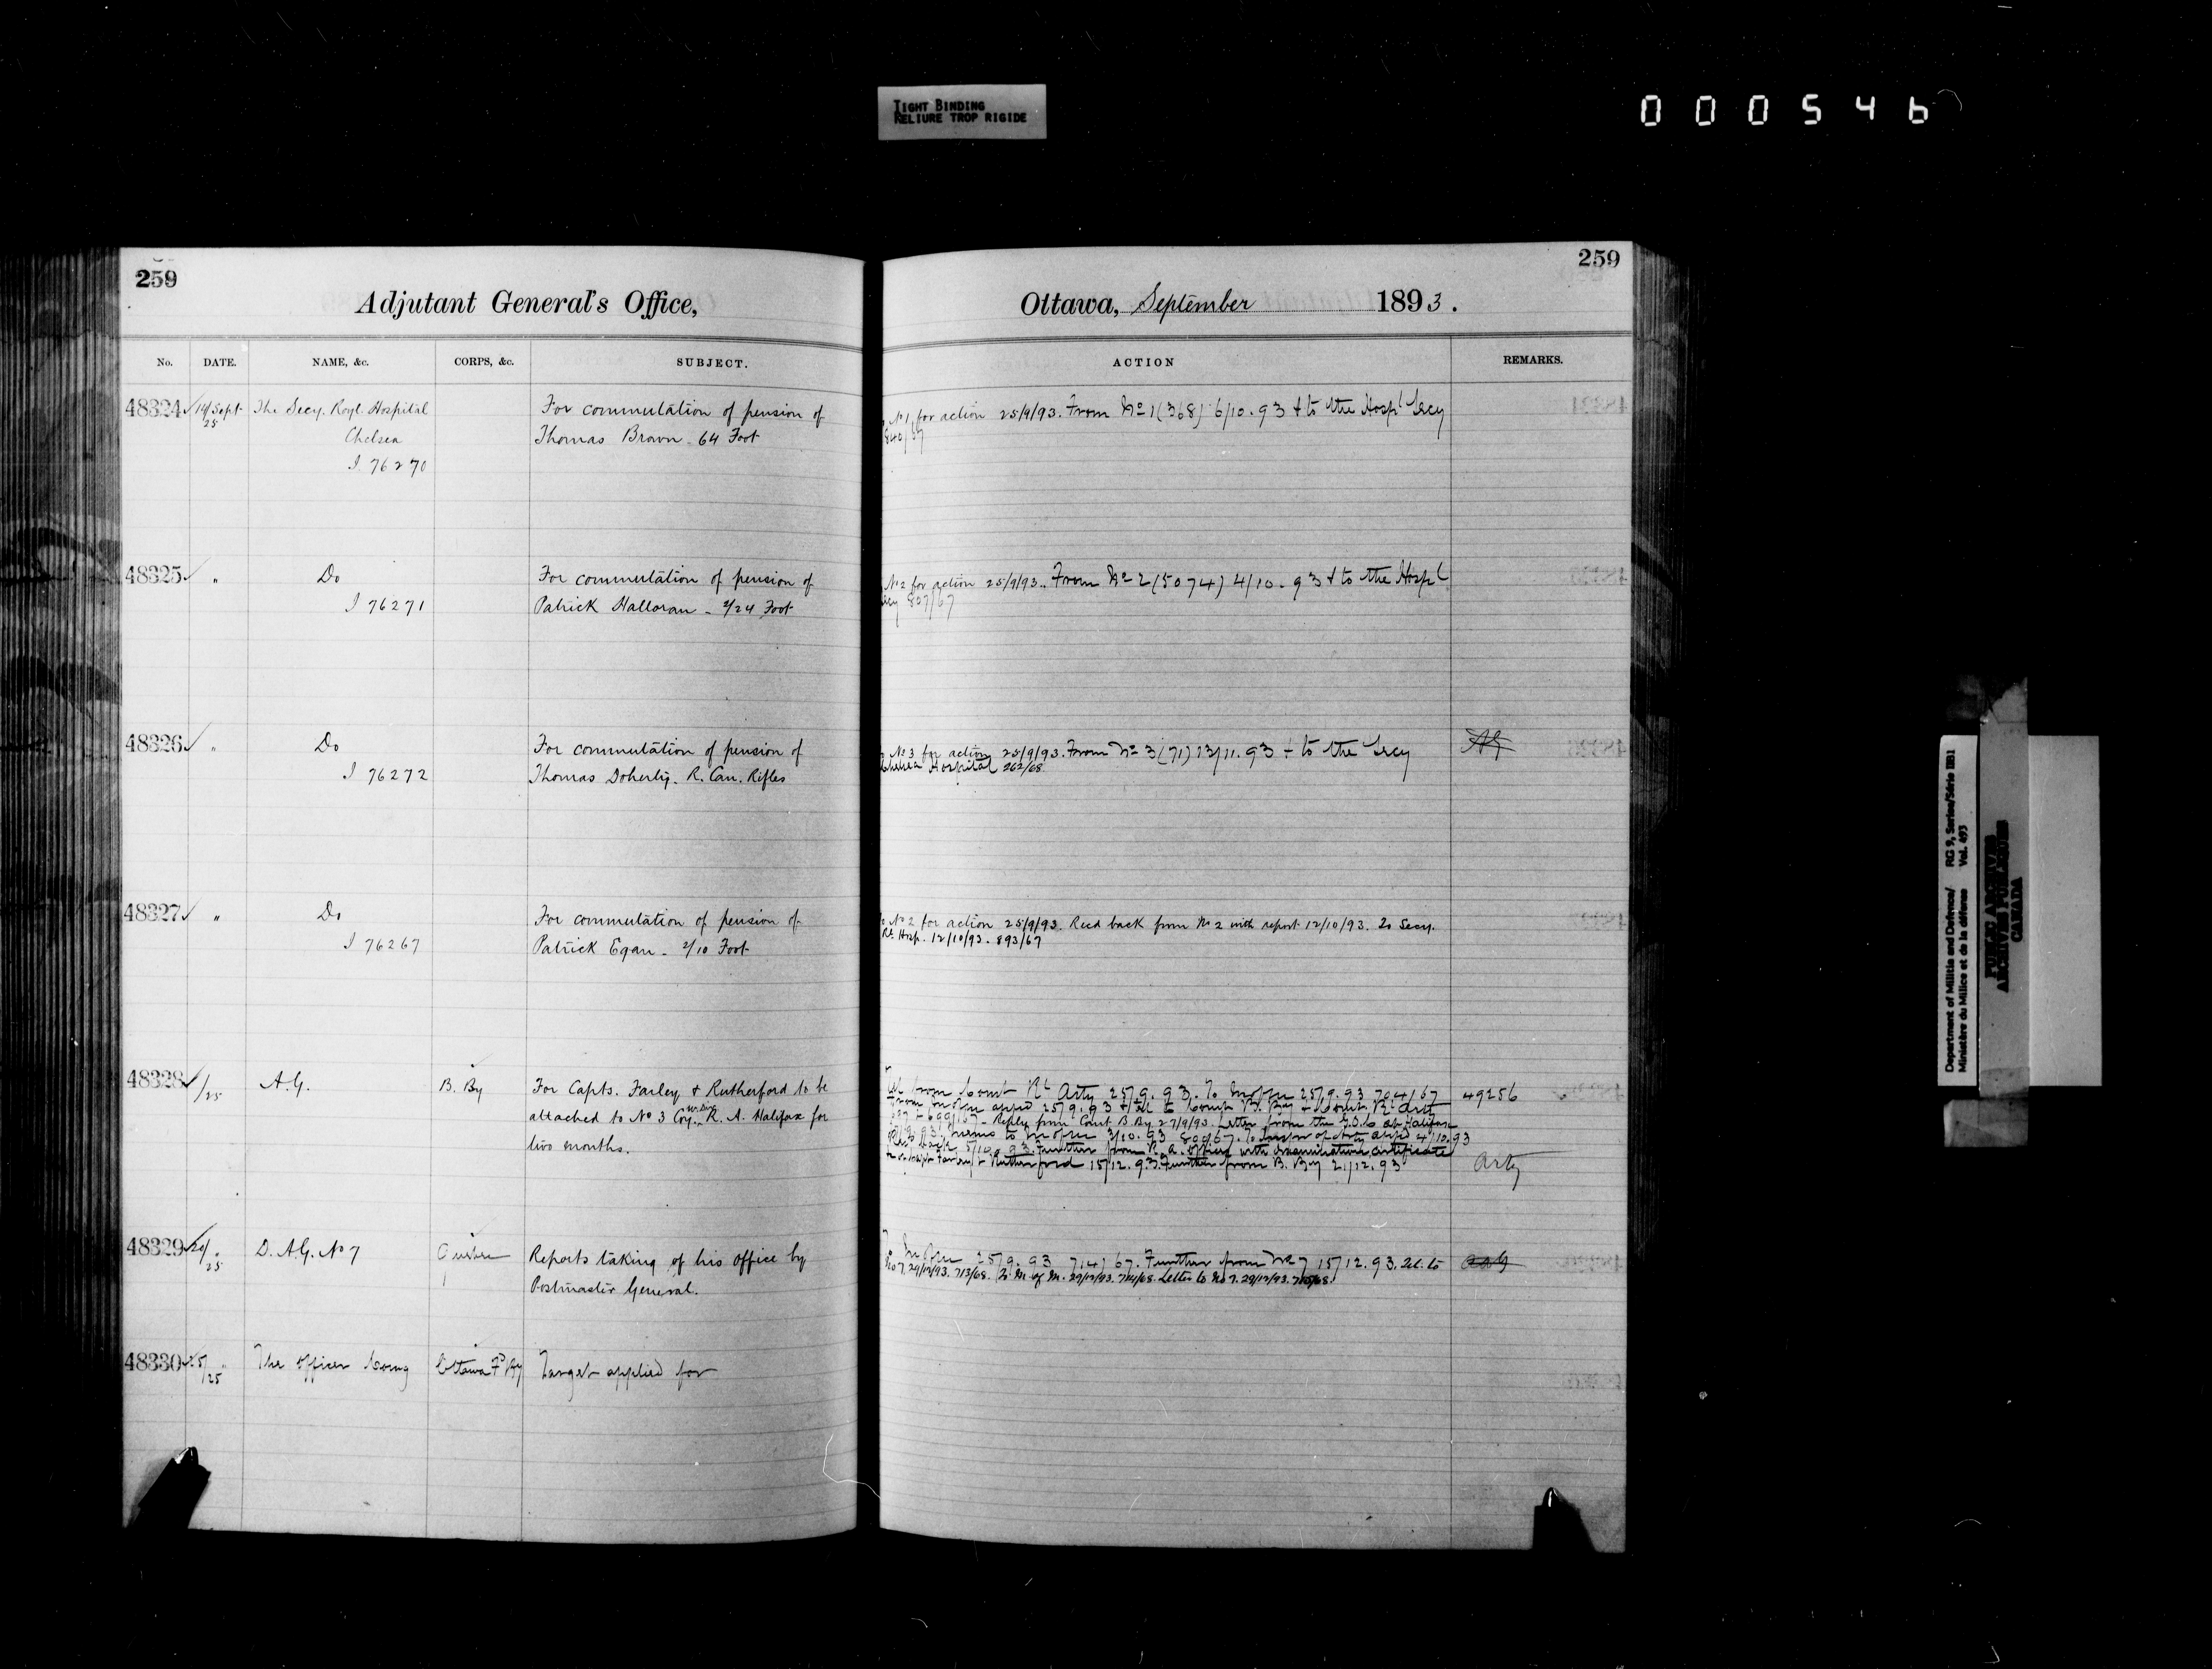 TIGHT BINDING
RELIURE TROP RIGIDE
000546
259
Adjutant General's Office,
No. DATE. NAME, &c. CORPS, &c. SUBJECT.
48324 14/Sept 25 The Secy. Royl. Hospital For commutation of pension of
Chelsea Thomas Brown - 64 Foot
I 76270
48325 " Do For commutation of pension of
I 76271 Patrick Halloran - 2/24 Foot
48326 " Do For commutation of pension of
I 76272 Thomas Doherty. R. Can. Rifles
48327 " Do For commutation of pension of
I 76267 Patrick Egan - 2/10 Foot
48328 /25 A.G. B. By For Capts. Farley & Rutherford to be
attached to No 3 Coy. R. A. Halifax for
two months.
48329 20/25 D.A.G. No 7 Reports taking of his office by
Postmaster General.
48330 25/25 The Officer Comg Ottawa Fd By Target applied for
259
Ottawa, September 1893.
ACTION REMARKS.
No 1 for action 25/9/93. From No 1 (368) 6/10.93 & to the Hospl Secy
840/67
No 2 for action 25/9/93.. From No 2 (5074) 4/10.93 & to the Hospl
Secy 807/67
No 3 for action 25/9/93. From No 3 (71) 13/11.93 & to the Secy
Chelsea Hospital 262/68
No 2 for action 25/9/93. Recd back from No 2 with report 12/10/93. To Secy.
Rl. Hosp. 12/10/93. 893/67
from Comt Rl Arty 25/9.93. To 25/9.93 704/67 49256
appd 25/9.93 & to Comt B. By & Comt Rl Arty
699/67 - Reply from Comt B By 27/9/93. Letter from the G.O.C. at Halifax
memo to 3/10.93 801/67. To of Arty appd 4/10.93
5/10.93. Further from R.A. Office with examination certificates
Farley & Rutherford 15/12.93. Further from B. By 21/12.93 Arty
25/9.93 714/67. Further from No 7 15/12.93. to
No 7. 29/12/93. 713/68. To M. of M. 29/12/93. 714/68. Letter to No 7. 29/12/93. 715/68.
Department of Militia and Defence/ RG 9, Series/Série IIB1
Ministère du Milice et de la défense Vol. 493
PUBLIC ARCHIVES
ARCHIVES PUBLIQUES
CANADA